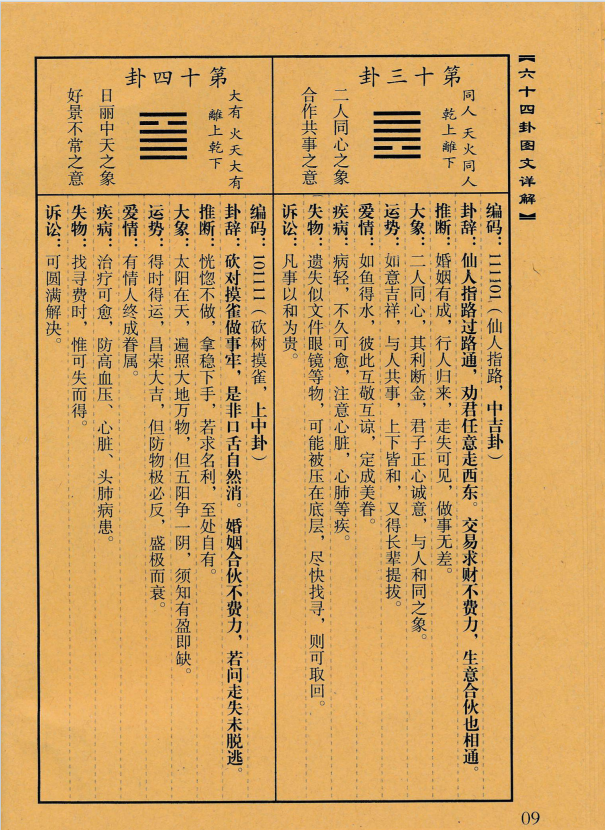 【六十四卦图文详解】
第十三卦
同人 天火同人
乾上離下
二人同心之象
合作共事之意
编码：111101（仙人指路，中吉卦）
卦辞：仙人指路过路通，劝君任意走西东。交易求财不费力，生意合伙也相通。
推断：婚姻有成，行人归来，走失可见，做事无差。
大象：二人同心，其利断金，君子正心诚意，与人和同之象。
运势：如意吉祥，与人共事，上下皆和，又得长辈提拔。
爱情：如鱼得水，彼此互敬互谅，定成美眷。
疾病：病轻，不久可愈，注意心脏，心肺等疾。
失物：遗失似文件眼镜等物，可能被压在底层，尽快找寻，则可取回。
诉讼：凡事以和为贵。
第十四卦
大有 火天大有
離上乾下
日丽中天之象
好景不常之意
编码：101111（砍树摸雀，上中卦）
卦辞：砍对摸雀做事牢，是非口舌自然消。婚姻合伙不费力，若问走失未脱逃。
推断：恍惚不做，拿稳下手，若求名利，至处自有。
大象：太阳在天，遍照大地万物，但五阳争一阴，须知有盈即缺。
运势：得时得运，昌荣大吉，但防物极必反，盛极而衰。
爱情：有情人终成眷属。
疾病：治疗可愈，防高血压、心脏、头肺病患。
失物：找寻费时，惟可失而得。
诉讼：可圆满解决。
09